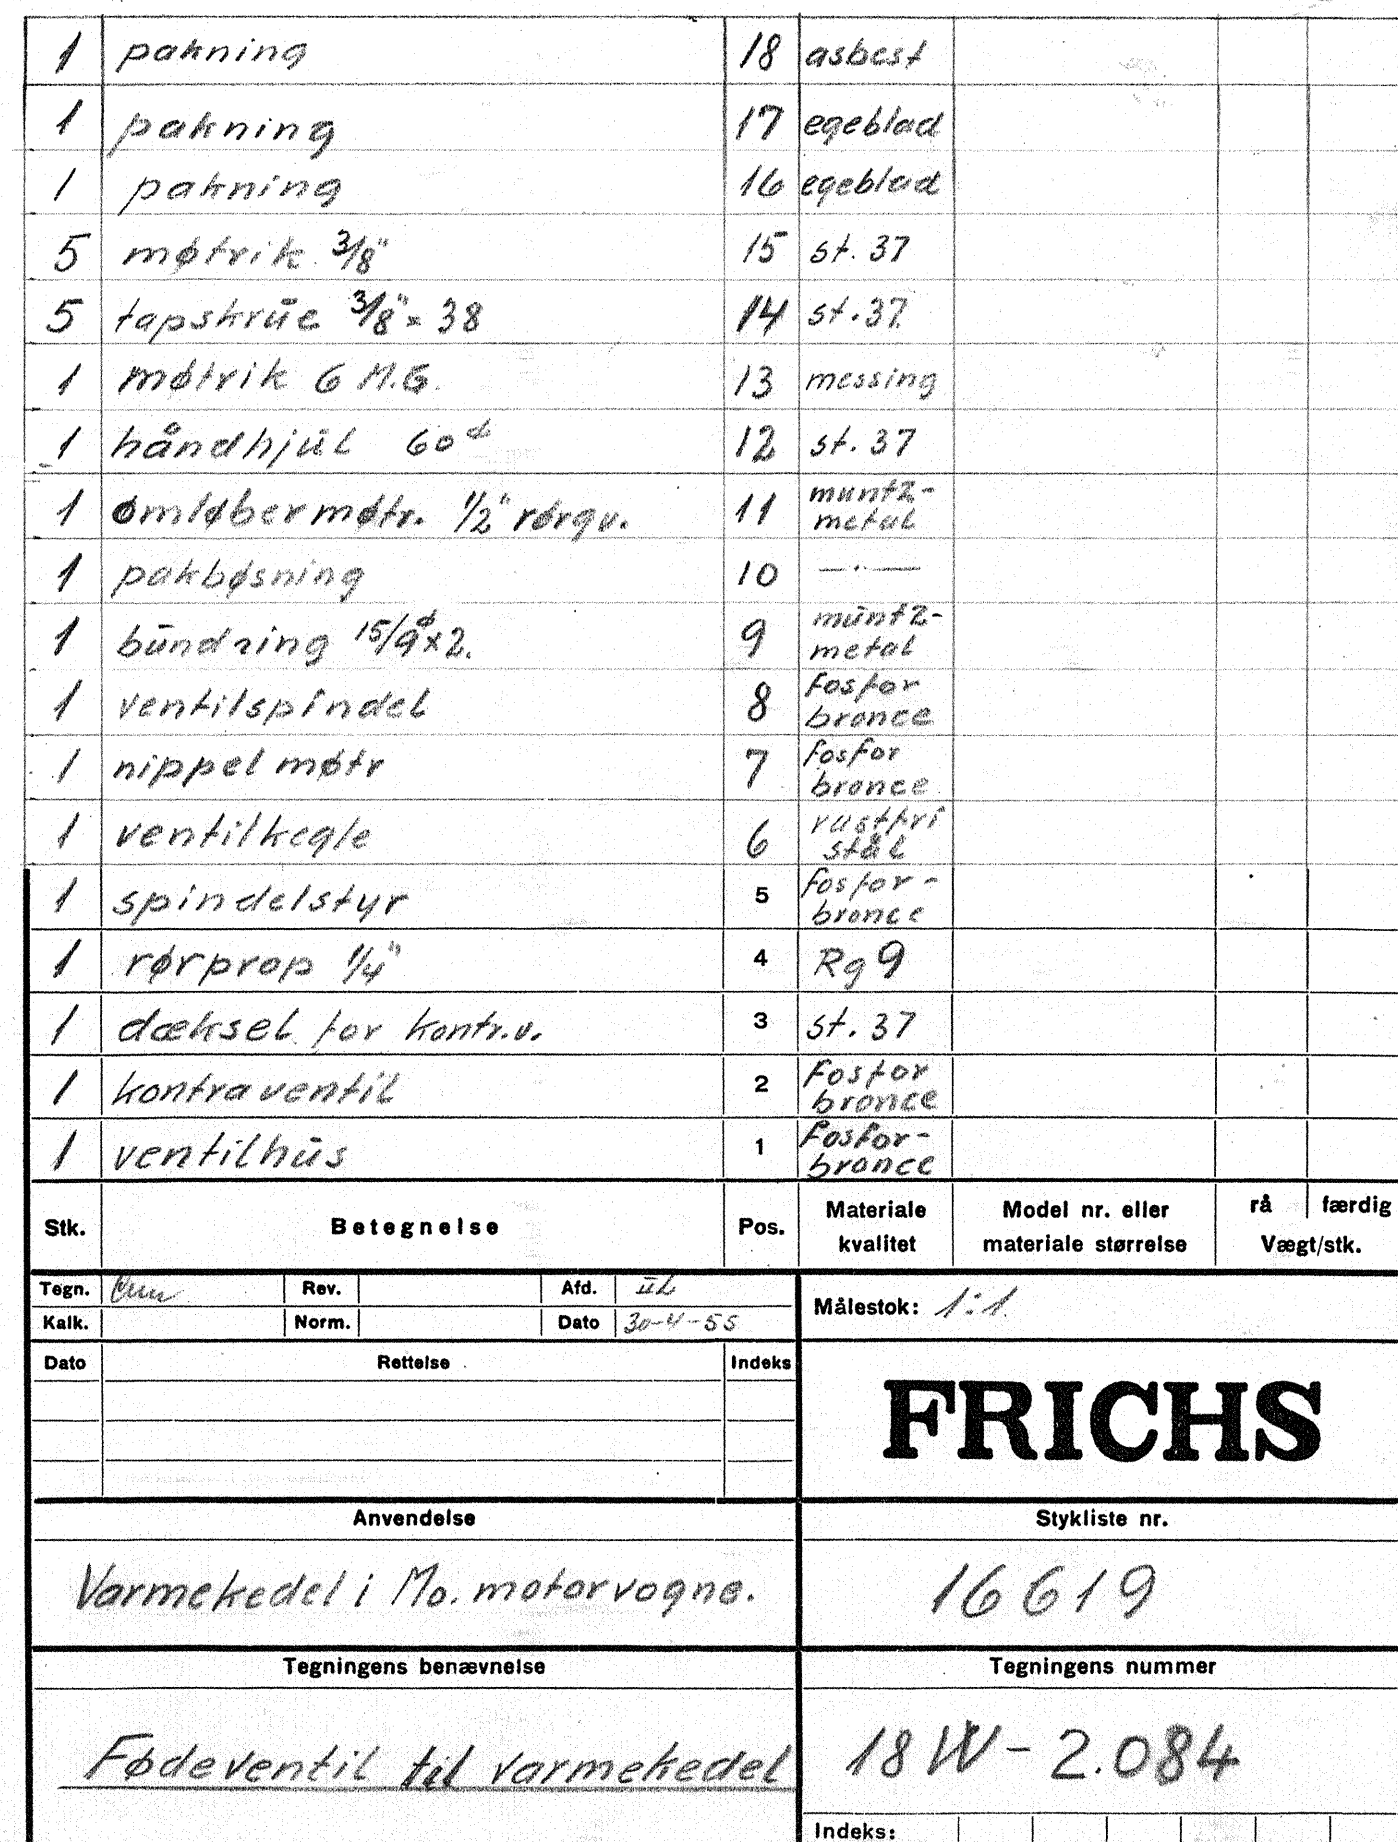 1 pakning 18 asbest
1 pakning 17 egeblad
1 pakning 16 egeblad
5 møtrik 3/8" 15 st. 37
5 tapskrūe 3/8" × 38 14 st. 37.
1 møtrik 6 M.G. 13 messing
1 håndhjūl 60ᵈ 12 st. 37
1 omløbermøtr. 1/2" rørgv. 11 muntz-
metal
1 pakbøsning 10 —·—
1 būndring 15/9ᵈ×2. 9 mūntz-
metal
1 ventilspindel 8 fosfor
bronce
1 nippelmøtr 7 fosfor
bronce
1 ventilkegle 6 rustfri
stål
1 spindelstyr 5 fosfor-
bronce
1 rørprop 1/4" 4 Rg 9
1 dæksel for kontr.v. 3 st. 37
1 kontraventil 2 Fosfor
bronce
1 ventilhūs 1 Fosfor-
bronce
Stk. Betegnelse Pos. Materiale
kvalitet Model nr. eller
materiale størrelse rå færdig
Vægt/stk.
Tegn. Rev. Afd.
Kalk. Norm. Dato 30-4-55
Målestok: 1:1.
Dato Rettelse Indeks
FRICHS
Anvendelse
Varmekedel i Mo. motorvogne.
Stykliste nr.
16619
Tegningens benævnelse
Fødeventil til varmekedel
Tegningens nummer
18W-2.084
Indeks: